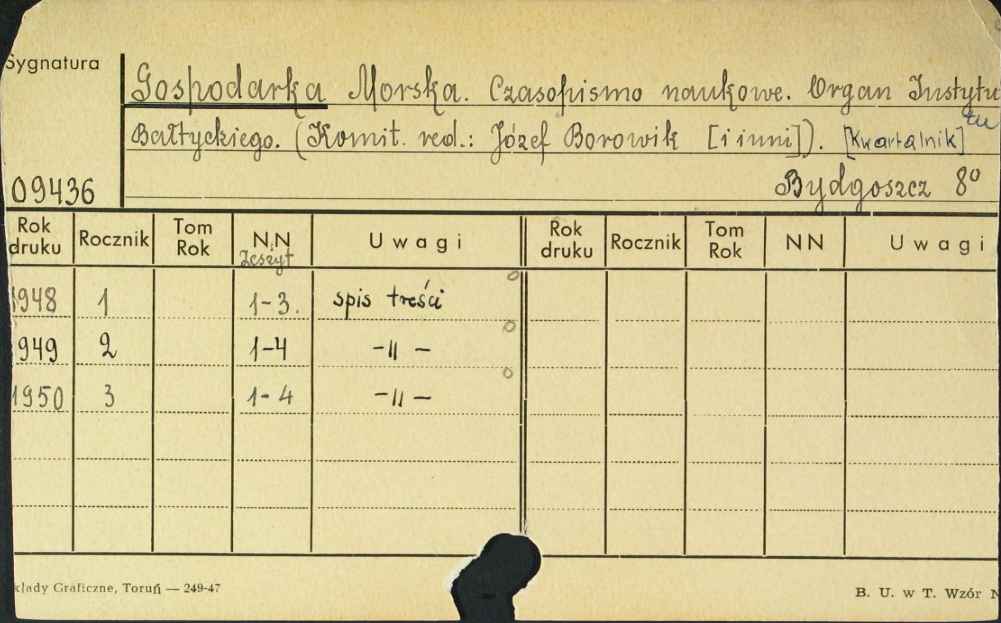 Sygnatura
Gospodarka Morska. Czasopismo naukowe. Organ Instytu
tu
Bałtyckiego. (Komit. red.: Józef Borowik [i inni]). [Kwartalnik]
09436 Bydgoszcz 8°
Rok druku Rocznik Tom Rok N.N Zeszyt Uwagi Rok druku Rocznik Tom Rok NN Uwagi
1948 1 1-3. spis treści
1949 2 1-4 -"-
1950 3 1-4 -"-
kłady Graficzne, Toruń — 249-47 B. U. w T. Wzór N